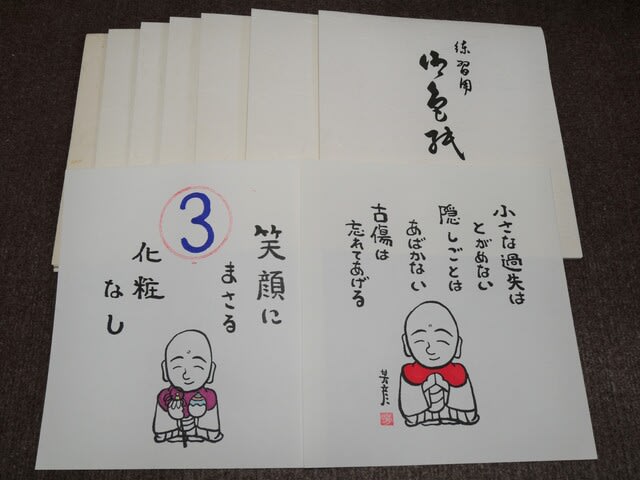 練習用
御色紙
③
笑顔に
まさる
化粧
なし
小さな過失は
とがめない
隠しごとは
あばかない
古傷は
忘れてあげる